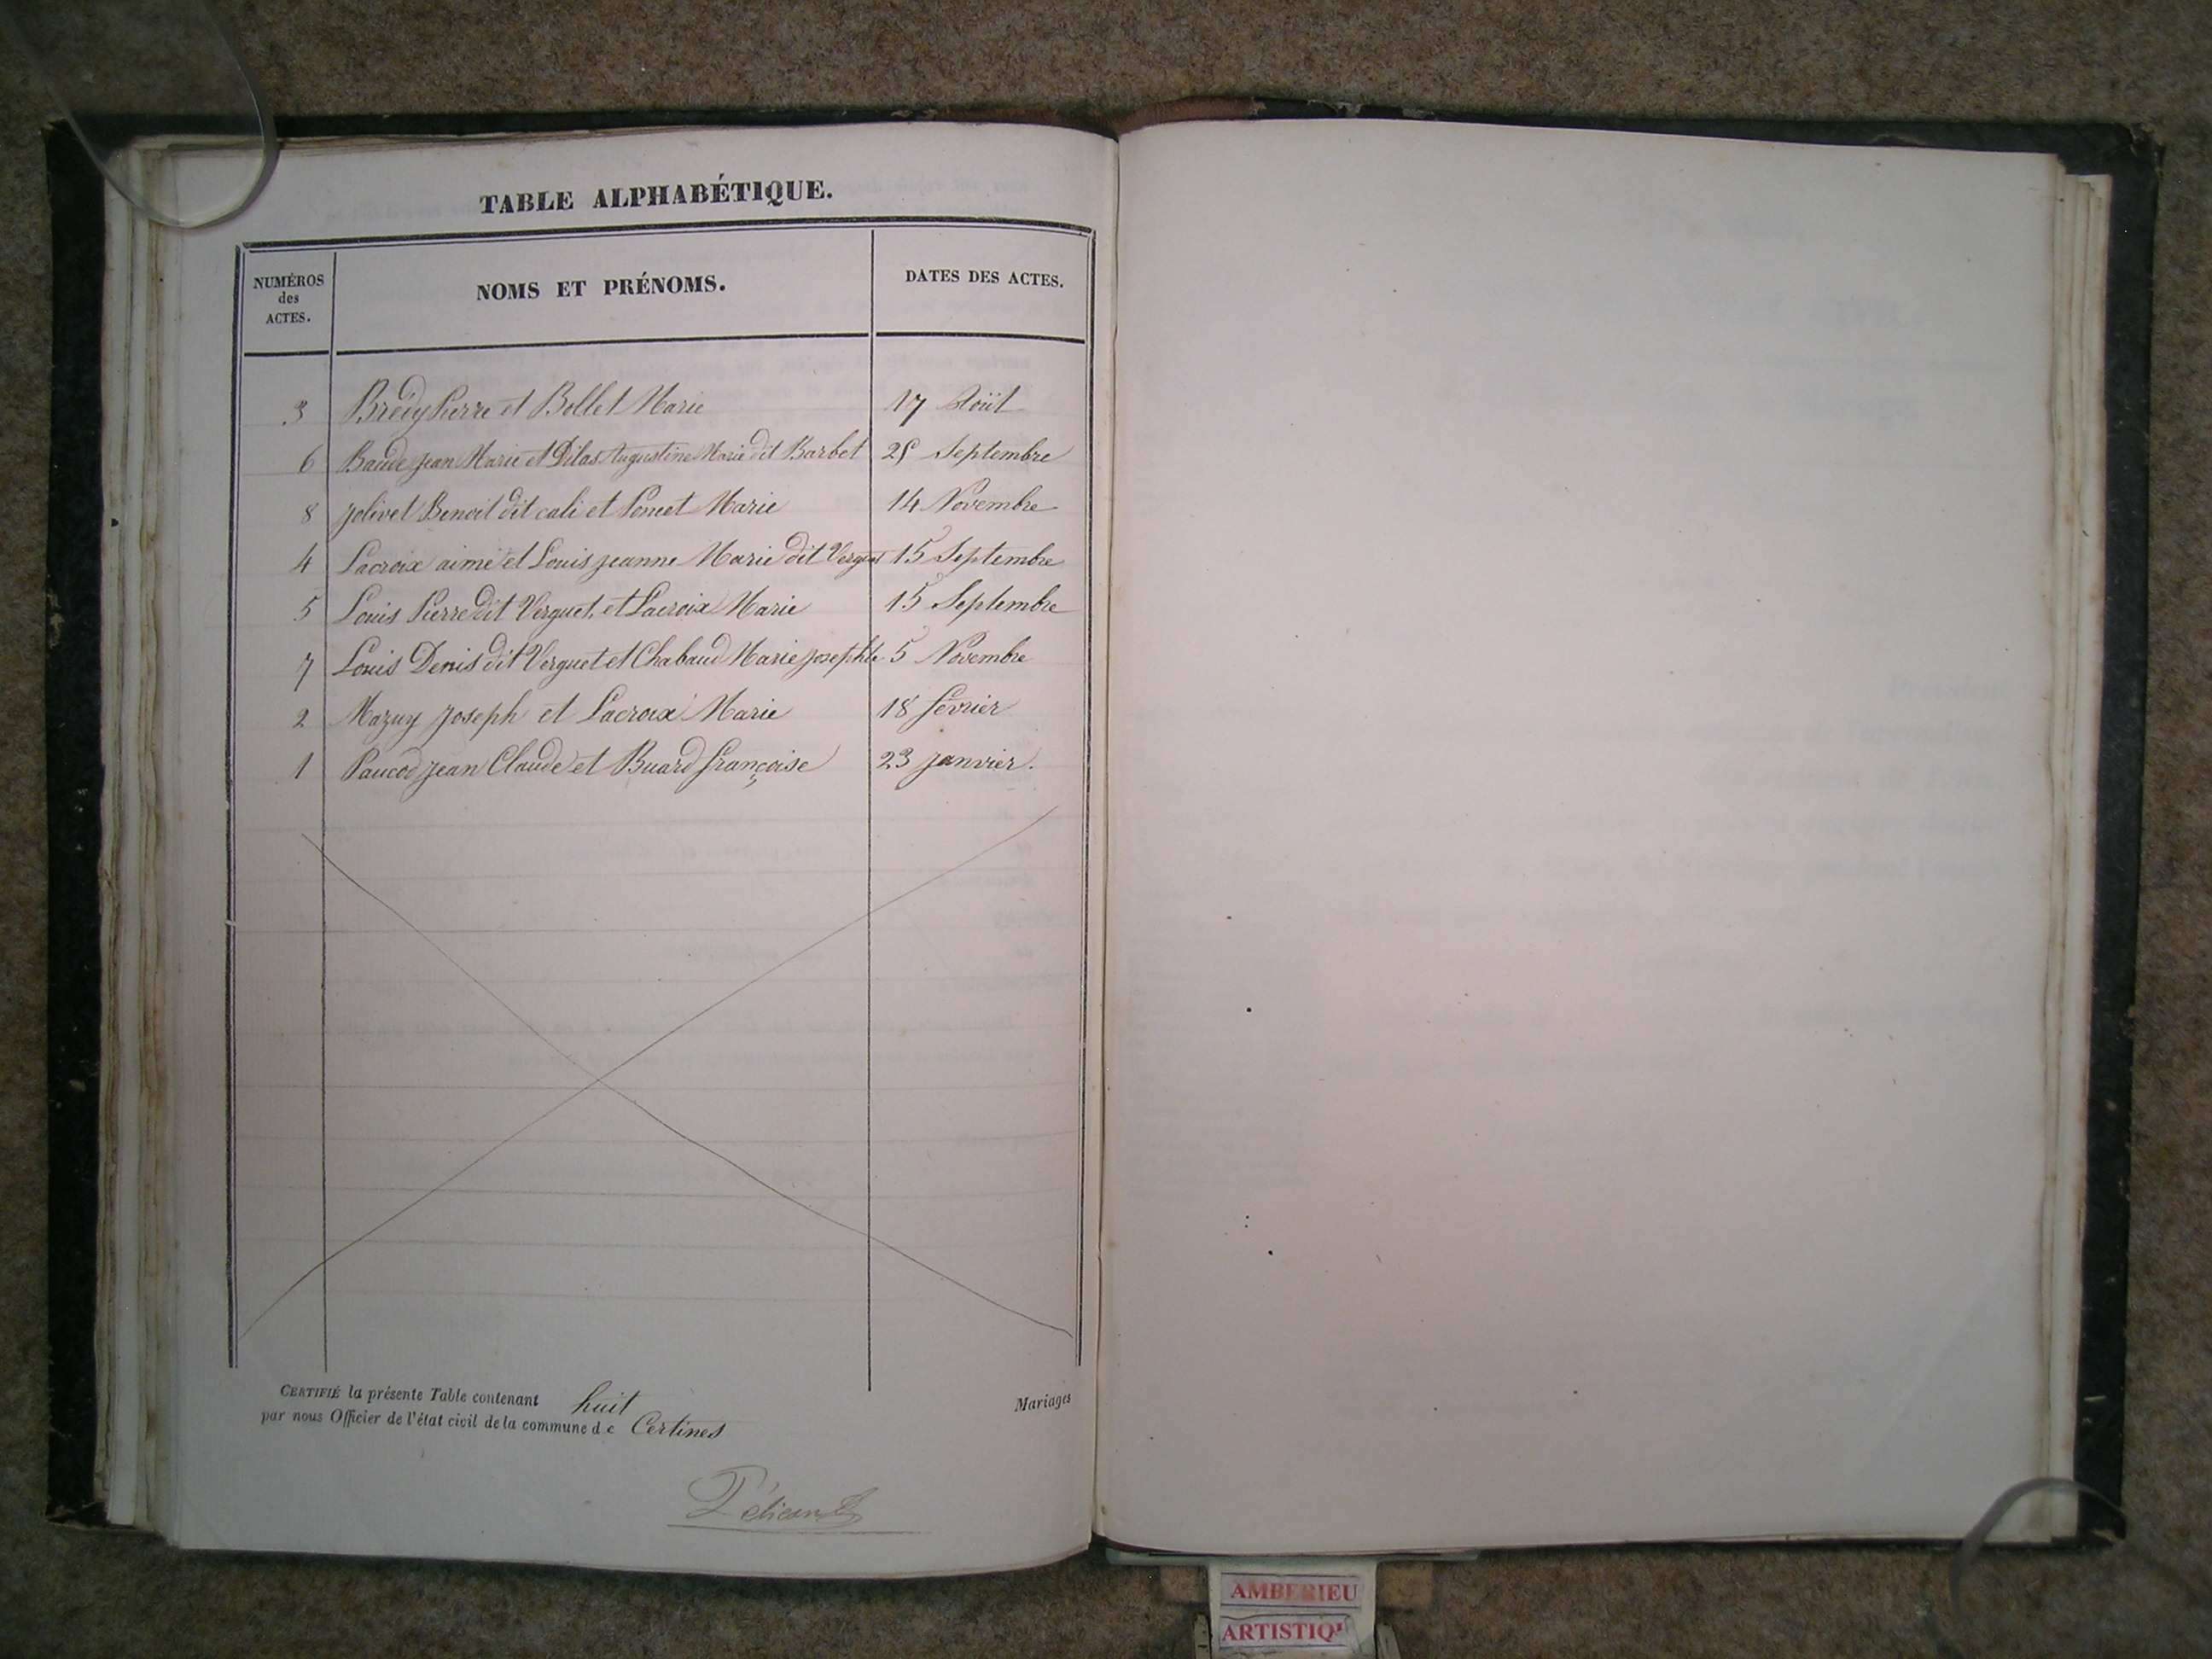 TABLE ALPHABÉTIQUE.
NUMÉROS
des
ACTES.
NOMS ET PRÉNOMS.
DATES DES ACTES.
3 Brédy Pierre et Bollet Marie 17 Août
6 Baude jean Marie et Dilas Augustine Marie dit Barbet 25 Septembre
8 jolivet Benoit dit cali et Ponet Marie 14 Novembre
4 Lacroix aimé et Louis jeanne Marie dit Verguet 15 Septembre
5 Louis Pierre dit Verguet, et Lacroix Marie 15 Septembre
7 Louis Denis dit Verguet et Chabaud Marie josephte 5 Novembre
2 Mazuy joseph et Lacroix Marie 18 février
1 Paucod jean Claude et Buard françoise 23 janvier.
CERTIFIÉ la présente Table contenant huit Mariages
par nous Officier de l'état civil de la commune de Certines
AMBERIEU
ARTISTIQ